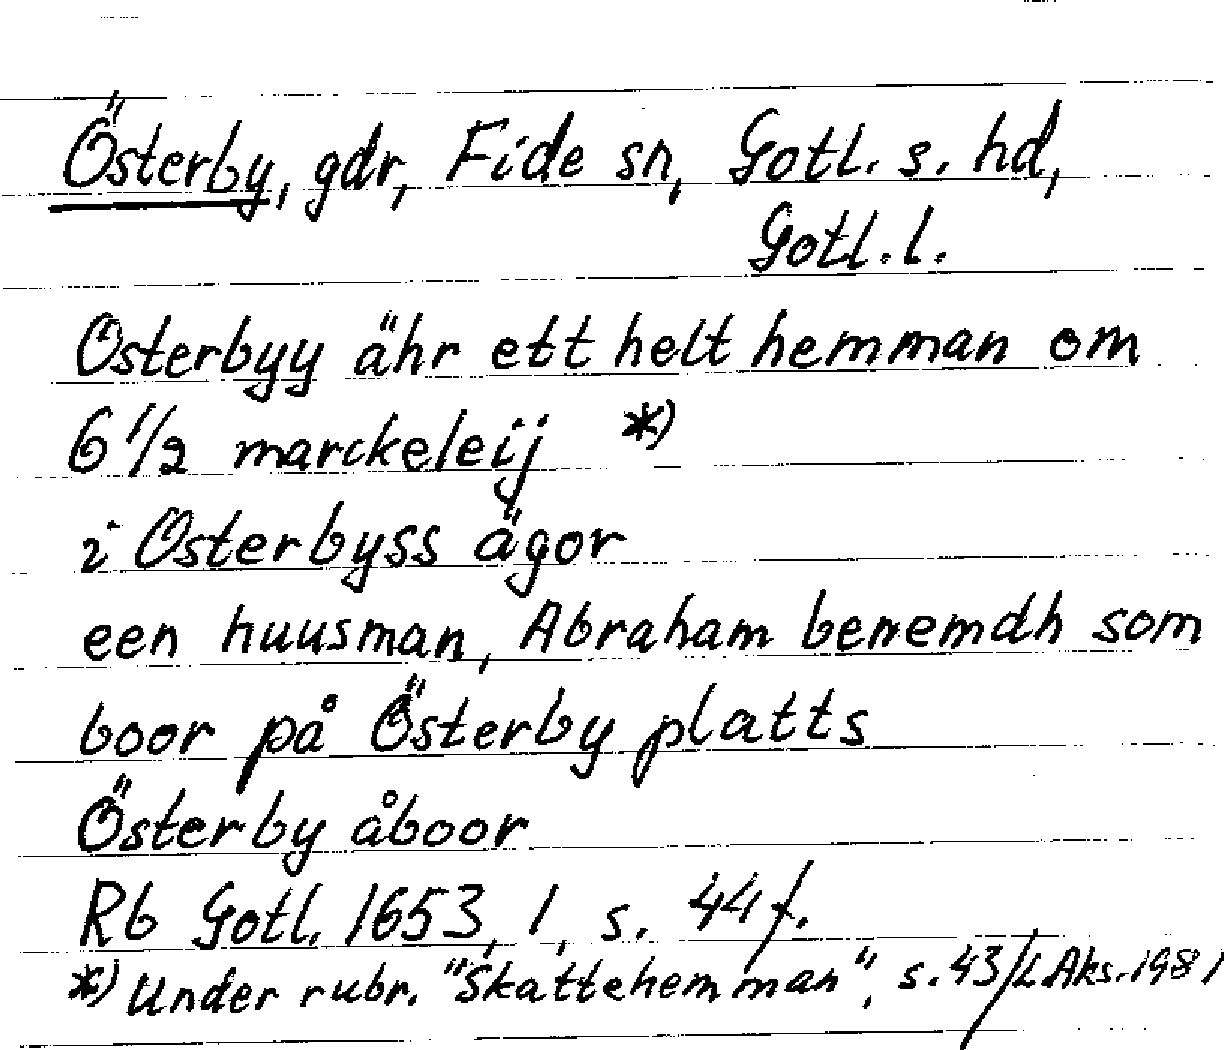 Österby, gdr, Fide sn, Gotl. s. hd,
Gotl. l.
Osterbyy ähr ett helt hemman om
6 1/2 marckeleij *)
i Osterbyss ägor
een huusman, Abraham benemdh som
boor på Österby platts
Österby åboor
Rb Gotl. 1653, 1, s. 44 f.
*) Under rubr. "Skattehemman", s. 43/L.Aks. 1981